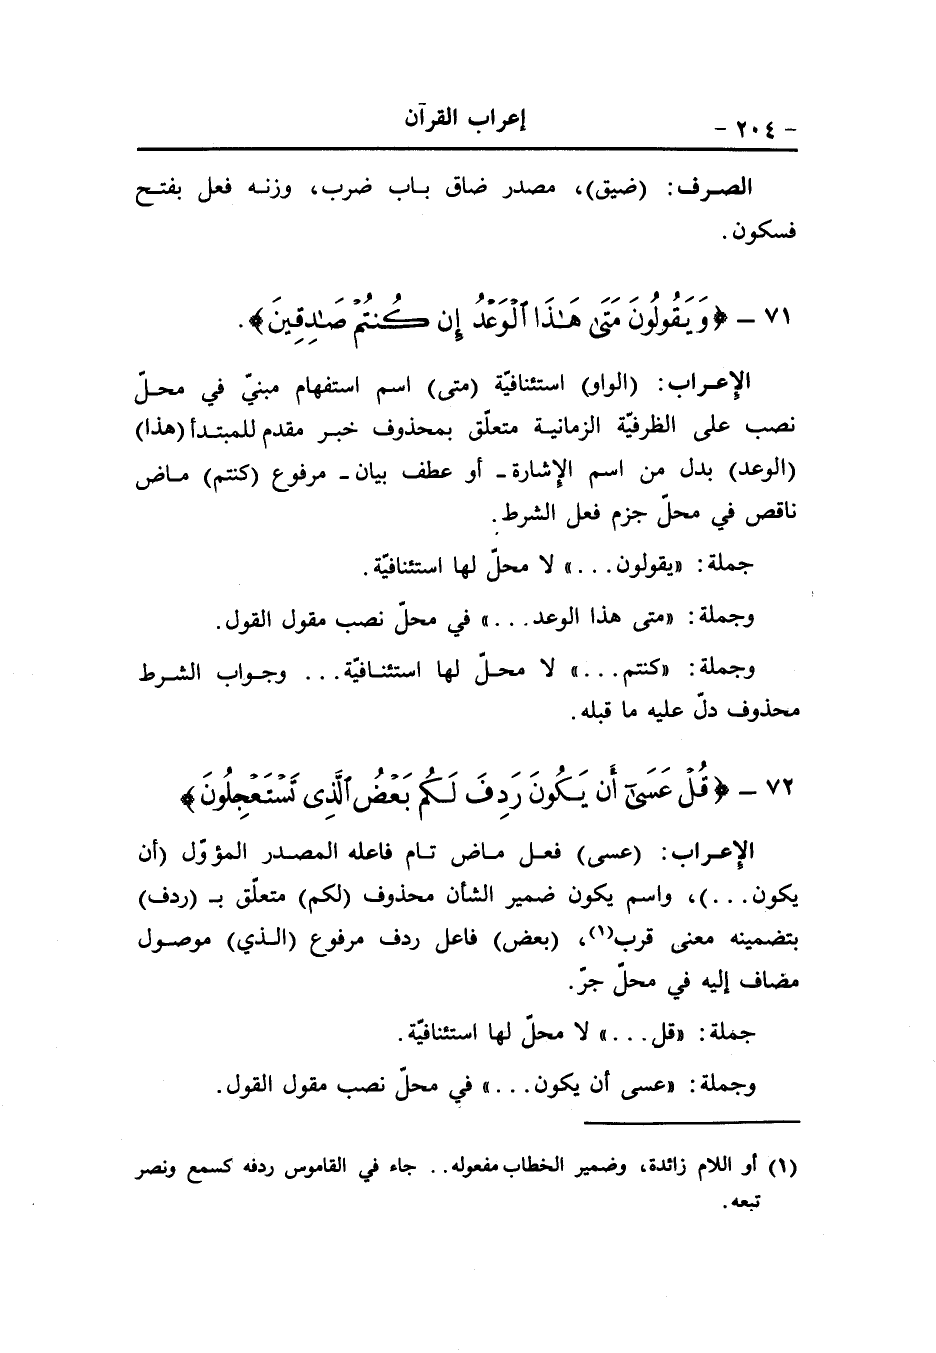 - ٢٠٤ -
إعراب القرآن
الصرف: (ضيق)، مصدر ضاق باب ضرب، وزنه فعل بفتح
فسكون.
٧١ - ﴿وَيَقُولُونَ مَتَىٰ هَـٰذَا ٱلْوَعْدُ إِن كُنتُمْ صَـٰدِقِينَ﴾.
الإعراب: (الواو) استئنافيّة (متى) اسم استفهام مبنيّ في محلّ
نصب على الظرفيّة الزمانية متعلّق بمحذوف خبر مقدم للمبتدأ (هذا)
(الوعد) بدل من اسم الإشارة - أو عطف بيان - مرفوع (كنتم) ماض
ناقص في محلّ جزم فعل الشرط.
جملة: «يقولون...» لا محلّ لها استئنافيّة.
وجملة: «متى هذا الوعد...» في محلّ نصب مقول القول.
وجملة: «كنتم...» لا محلّ لها استئنافيّة... وجواب الشرط
محذوف دلّ عليه ما قبله.
٧٢ - ﴿قُلْ عَسَىٰٓ أَن يَكُونَ رَدِفَ لَكُم بَعْضُ ٱلَّذِى تَسْتَعْجِلُونَ﴾
الإعراب: (عسى) فعل ماض تام فاعله المصدر المؤوّل (أن
يكون...)، واسم يكون ضمير الشأن محذوف (لكم) متعلّق بـ (ردف)
بتضمينه معنى قرب(١)، (بعض) فاعل ردف مرفوع (الذي) موصول
مضاف إليه في محلّ جرّ.
جملة: «قل...» لا محلّ لها استئنافيّة.
وجملة: «عسى أن يكون...» في محلّ نصب مقول القول.
(١) أو اللام زائدة، وضمير الخطاب مفعوله.. جاء في القاموس ردفه كسمع ونصر
تبعه.